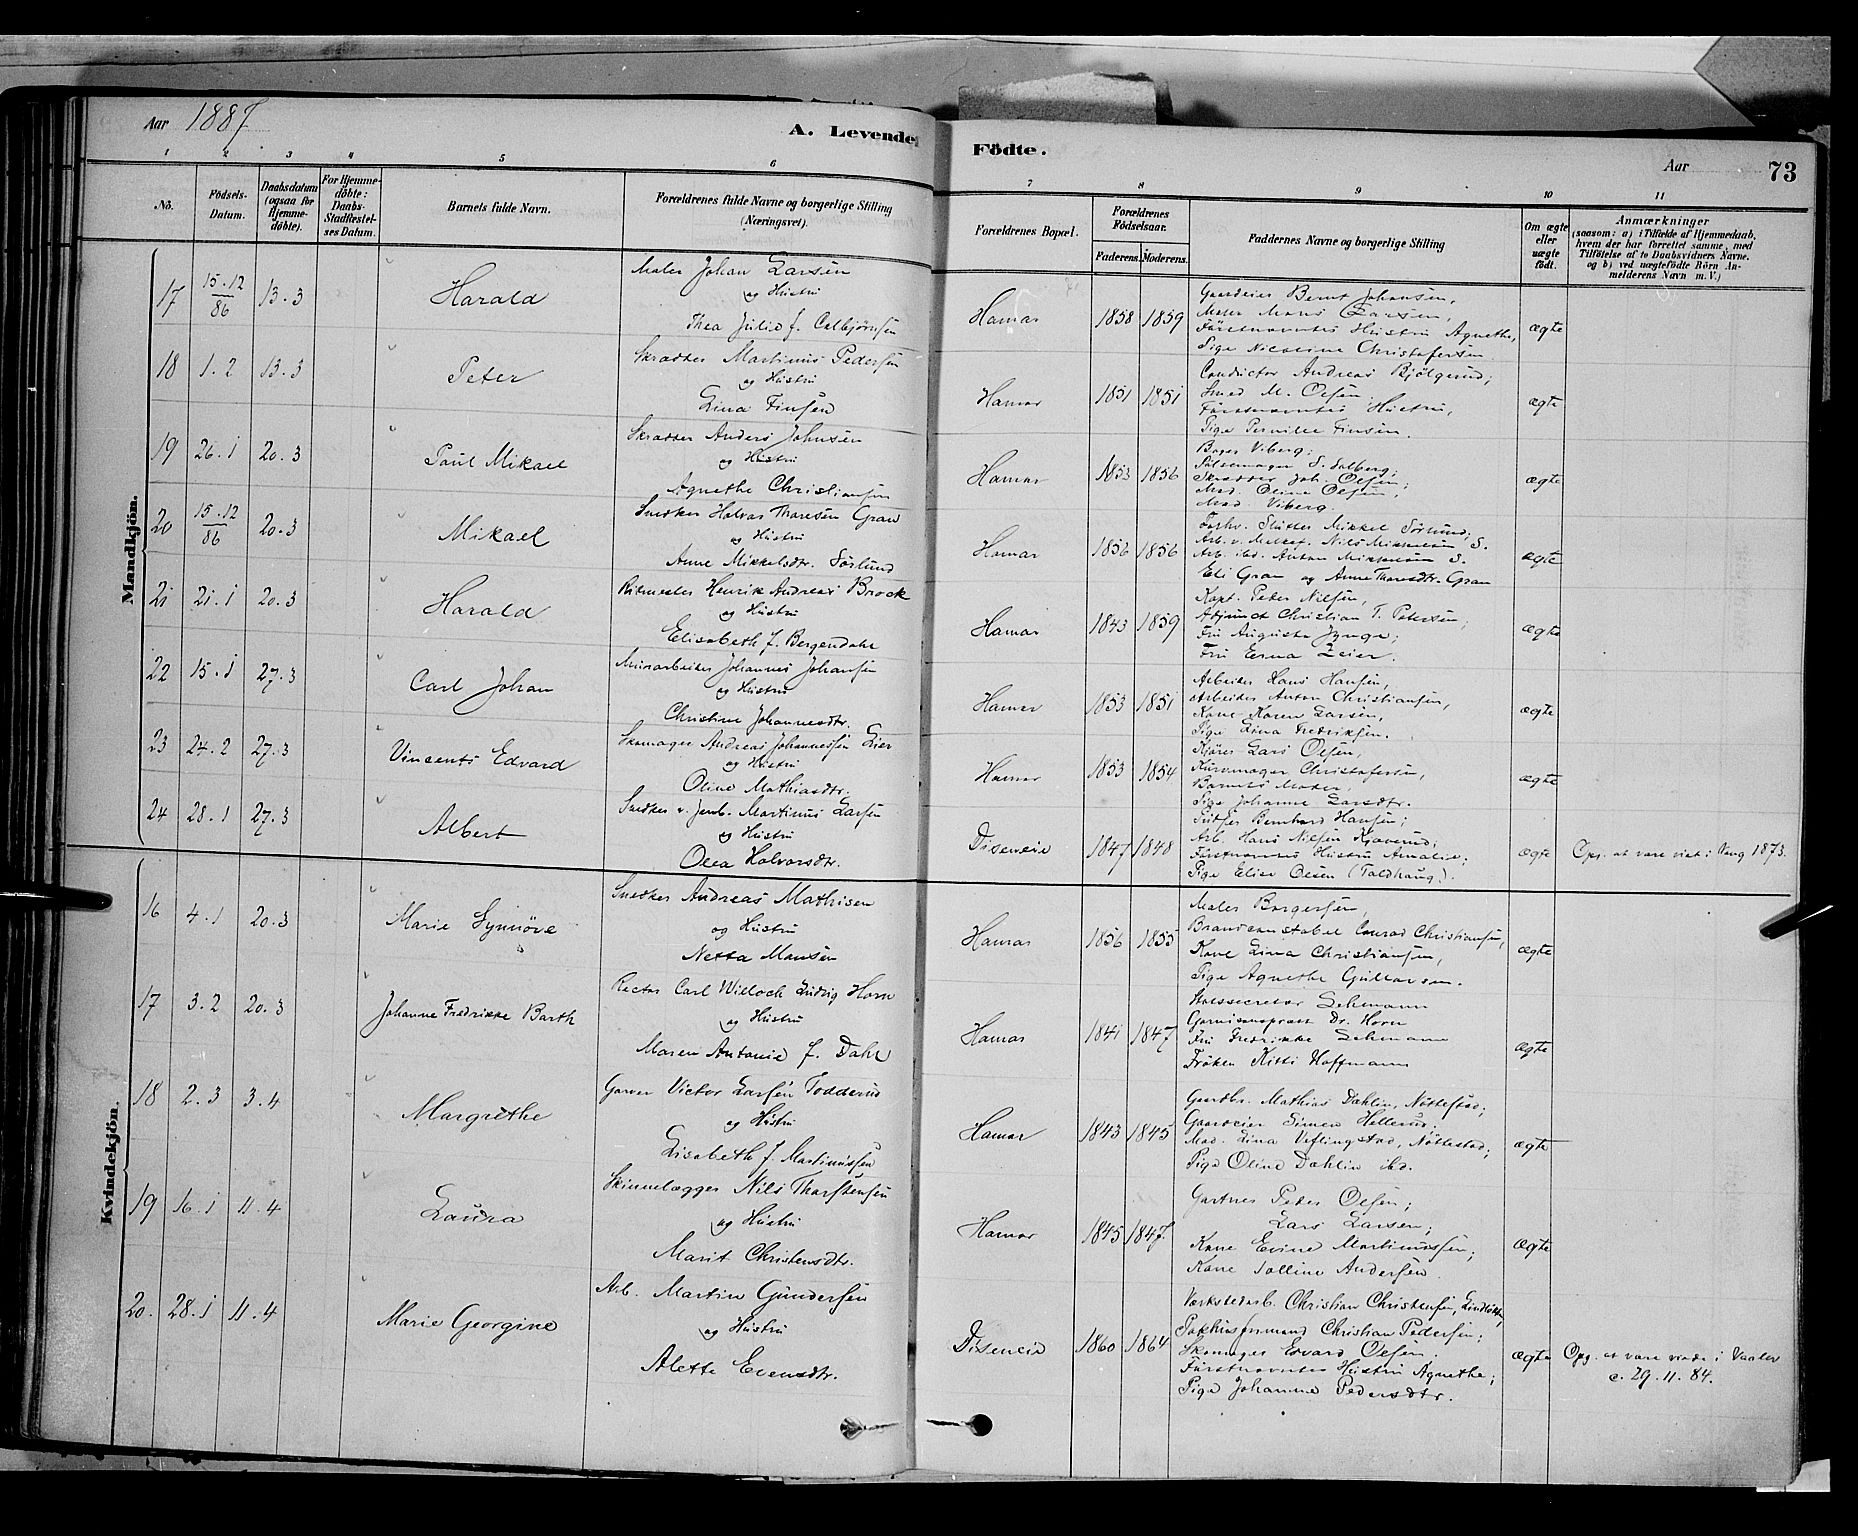 Aar 1887
A. Levende
Födte.
Aar
73
1 2 3 4 5 6 7 8 9 10 11
No.
Födsels-Datum.
Daabsdatum (ogsaa for Hjemme-döbte).
For Hjemme-döbte: Daabs-Stadfæstel-ses Datum.
Barnets fulde Navn.
Forældrenes fulde Navne og borgerlige Stilling (Næringsvei).
Forældrenes Bopæl.
Forældrenes Födselsaar.
Faderens. Moderens.
Faddernes Navne og borgerlige Stilling
Om ægte eller uægte födt.
Anmærkninger
(saasom: a) i Tilfælde af Hjemmedaab,
hvem der har forrettet samme, med
Tilföielse af to Daabsvidners Navne.
og b) ved uægtefödte Börn An-
melderens Navn m. V.)
Mandkjön.
17 15.12/86 13.3 Harald
Maler Johan Larsen
og Hustru
Thea Julie f.
Hamar 1858 1859
Gaardeier Bernt Johansen,
Maler Larsen,
Förstnævntes Hustru Agnethe,
Pige Nicoline Christofersen
ægte
18 1.2 13.3 Peter
Skrædder Martinus Pedersen
og Hustru
Lina Finsen
Hamar 1851 1851
Conductör Andreas Bjölgerud;
Smed M. Olsen
Förstnævntes Hustru,
Pige Pernille Finsen.
ægte
19 26.1 20.3 Paul Mikael
Skrædder Anders Johnsen
og Hustru
Agnethe Christiansen
Hamar 1853 1856
Bager Viberg;
Pölsemager S. Solberg;
Skrædder Joh. Olsen;
Mad. Oline Olsen,
Mad. Viberg.
ægte
20 15.12/86 20.3 Mikael
Snedker Halvor Thoresen Gran
og Hustru
Anne Mikkelsdtr. Sörlund
Hamar 1856 1856
Forhv. Slutter Mikkel Sörlund;
Arb. v. Nils Mikkelsen S.
Arb. ibd. Anton Mikkelsen S.
Eli Gran og Anne Thoresdtr. Gran
ægte
21 21.1 20.3 Harald
Ritmester Henrik Andreas Brock
og Hustru
Elisabeth f. Bergendahl
Hamar 1843 1859
Kapt. Peter Nilsen,
Adjunct Christian T. Petersen,
Fru Augusta
Fru Erna Zeier.
ægte
22 15.1 27.3 Carl Johan
Murarbeider Johannes Johansen
og Hustru
Christine Johannesdtr.
Hamar 1853 1851
Arbeider Hans Hansen,
Arbeider Anton Christiansen,
Kone Karen Larsen,
Pige Lina Fredriksen.
ægte
23 24.2 27.3 Vincents Edvard
Skomager Andreas Johannessen Lier
og Hustru
Oline Mathiasdtr.
Hamar 1853 1854
Kjörer Lars Olsen,
Kurvmager Christofersen,
Barnets Moder,
Pige Johanne Larsdtr.
ægte
24 28.1 27.3 Albert
Snedker v. Jernb. Martinus Larsen
og Hustru
Olea Halvorsdtr.
Diseneie 1847 1848
Pudser Bernhard Hansen;
Arb. Hans Nilsen
Förstnævntes Hustru Amalie;
Pige Elise Olsen (Toldhaug).
ægte Opg. at være viet i Vang 1873.
Kvindekjön.
16 4.1 20.3 Marie Synnöve
Snedker Andreas Mathisen
og Hustru
Netta Monsen
Hamar 1856 1855
Maler Borgersen,
Brandconstabel Conrad Christiansen,
Kone Lina Christiansen,
Pige Agnethe Gullovsen.
ægte
17 3.2 20.3 Johanne Fredrikke Barth
Rector Carl Willoch Ludvig Horn
og Hustru
Maren Antonie f. Dahl
Hamar 1841 1847
Sehmann
Garnisonsprest Dr. Horn
Fru Fredrikke Sehmann
Fröken Kitti Hoffmann
ægte
18 2.3 3.4 Margrethe
Garver Victor Larsen Todderud
og Hustru
Lisabeth f. Martinussen
Hamar 1843 1845
Gaardbr. Mathias Dahlin, Nöttestad;
Gaardeier Simen Hellerud;
Mad. Lina Veflingstad, Nöttestad;
Pige Oline Dahlin ibd.
ægte
19 16.1 11.4 Laura
Skinnelægger Nils Thorstensen
og Hustru
Marit Christensdtr.
Hamar 1845 1847.
Gartner Peder Olsen;
Lars Larsen;
Kone Evine Martinussen;
Kone Tolline Andersen.
ægte
20. 28.1 11.4 Marie Georgine
Arb. Martin Gundersen
og Hustru
Alette Evensdtr.
Diseneie 1860 1864
Værkstedarb. Christian Christensen,
Pakhusformand Christian Pedersen;
Skomager Edvard Olsen
Förstnævntes Hustru Agnethe;
Pige Johanne Pedersdtr.
ægte Opg. at være viede i Vaaler
c. 29.11.84.